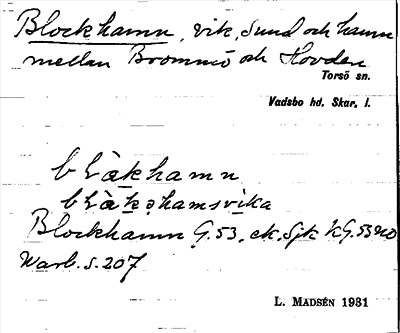 Blockhamn, vik, sund och hamn
mellan Brommö och Hovden
Torsö sn.
Vadsbo hd. Skar. l.
blåkhamn
blåkəhamsvika
Blockhamn G.53, ek. Sjk KG.53 no
Warb. s. 207
L. MADSÉN 1931